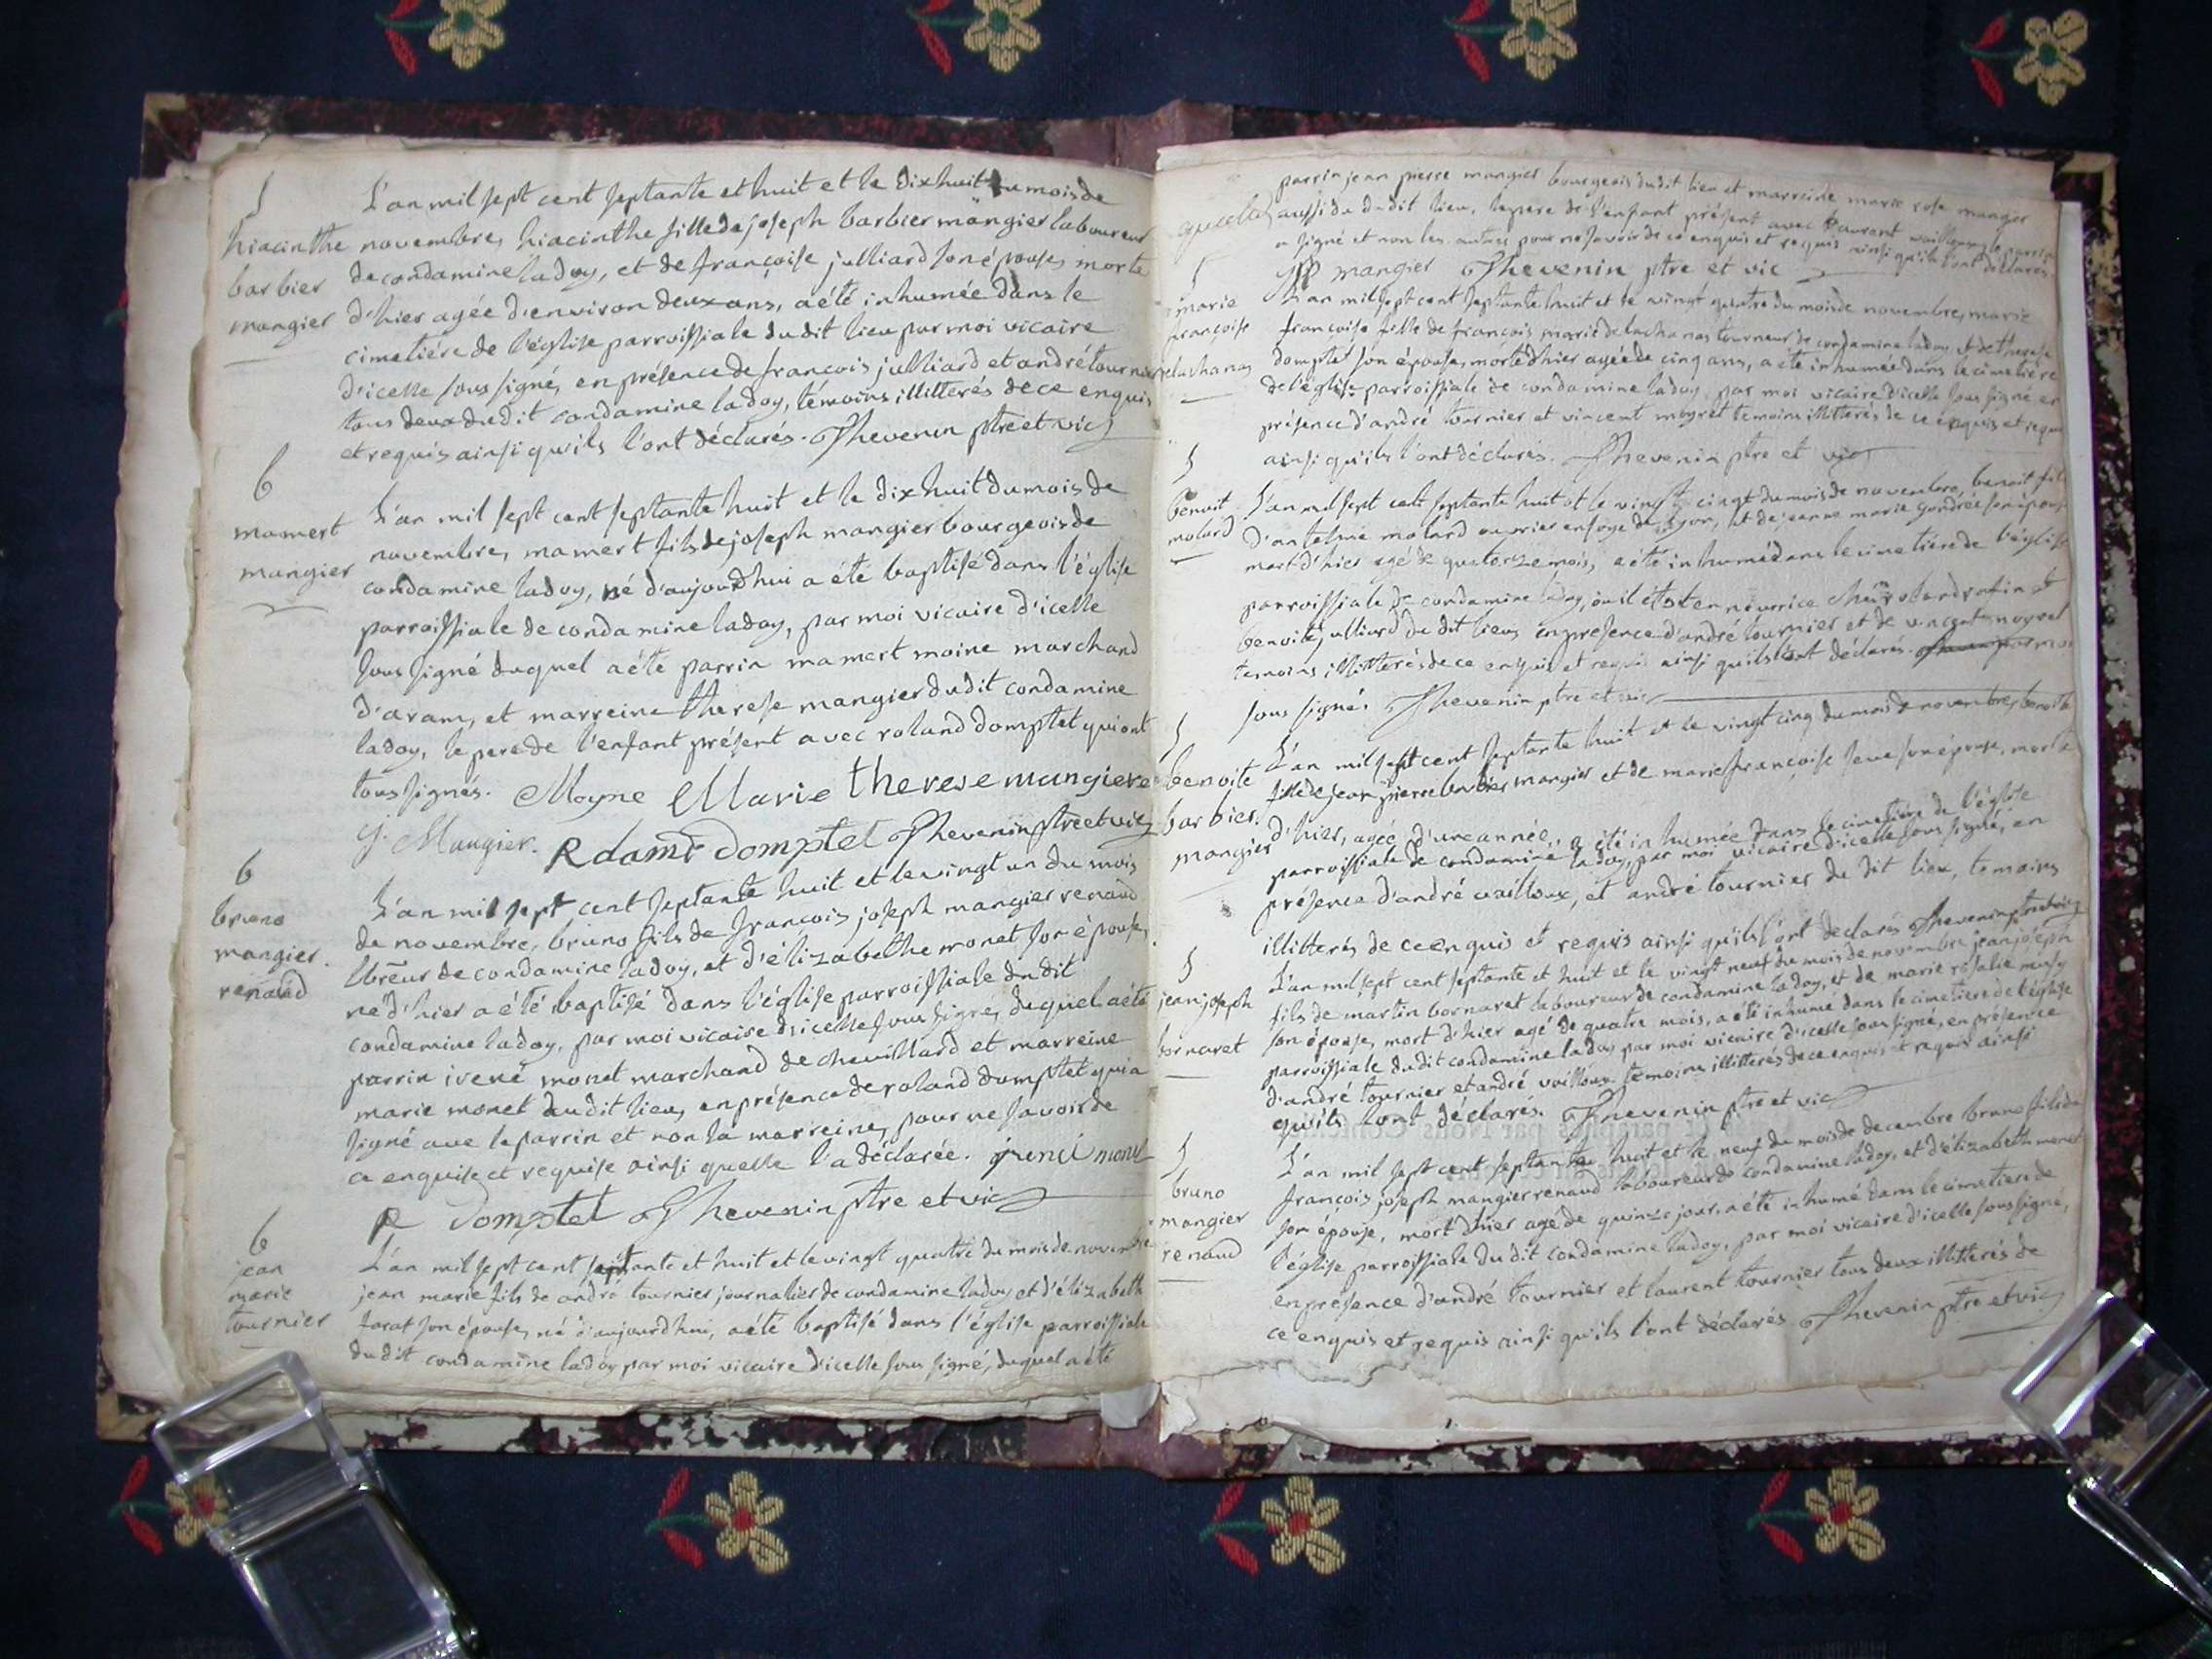 S
hiacinthe
barbier
mangier
L'an mil sept cent septante et huit et le dixhuit du mois de
novembre, hiacinthe fille de joseph barbier mangier laboureur
de condamine ladoy, et de françoise julliard son épouse, morte
d'hier agée d'environ deux ans, a été inhumée dans le
cimetiére de l'église parroissiale du dit lieu par moi vicaire
d'icelle sous signé, en présence de francois julliard et andré tournier
tous deux du dit condamine ladoy, témoins illitterés de ce enquis
et requis ainsi qu'ils l'ont déclarés. Thevenin ptre et vic
6
mamert
mangier
L'an mil sept cent septante huit et le dix huit du mois de
novembre, mamert fils de joseph mangier bourgeois de
condamine ladoy, né d'aujourdhui a été baptisé dans l'église
parroissiale de condamine ladoy, par moi vicaire d'icelle
sous signé duquel a été parrin mamert moine marchand
d'aram, et marreine therese mangier du dit condamine
ladoy, le pere de l'enfant présent avec roland domptet qui ont
tous signés. Moyne Marie therese mangiere
J. Mangier. R domptet Thevenin ptre et vic
6
bruno
mangier
renaud
L'an mil sept cent septante huit et le vingt un du mois
de novembre, bruno fils de francois joseph mangier renaud
lbreur de condamine ladoy, et d'élizabethe monet son épouse,
né d'hier a été baptisé dans l'église parroissiale du dit
condamine ladoy, par moi vicaire d'icelle sous signé, duquel a été
parrin irené monet marchand de chevillard et marreine
marie monet du dit lieu, en présence de roland domptet qui a
signé avec le parrin et non la marreine, pour ne savoir de
ce enquise et requise ainsi quelle l'a déclarée. irené monet
R Domptet Thevenin ptre et vic
6
jean
marie
tournier
L'an mil sept cent septante et huit et le vingt quatre du mois de novembre
jean marie fils de andré tournier journalier de condamine ladoy et d'élizabeth
son épouse, né d'aujourdhui, a été baptisé dans l'église parroissiale
du dit condamine ladoy par moi vicaire d'icelle sous signé, duquel a été
parrin jean pierre mangier bourgeois du dit lieu et marreine marie rose mangier
aussi du dit lieu, le pere de l'enfant présent avec laurent vailloux, le parrin
a signé et non les autres pour ne savoir de ce enquis et requis ainsi qu'ils l'ont déclarés
JP mangier Thevenin ptre et vic
S
marie
françoise
delachanas
L'an mil sept cent septante huit et le vingt quatre du mois de novembre, marie
françoise fille de françois marie delachanas tourneur de condamine ladoy et de therese
domptet son épouse, morte d'hier agée de cinq ans, a été inhumée dans le cimetiére
de l'église parroissiale de condamine ladoy par moi vicaire d'icelle sous signé en
présence d'andré tournier et vincent moyret temoins illitterés de ce enquis et requis
ainsi qu'ils l'ont déclarés. Thevenin ptre et vic
S
benoit
molard
L'an mil sept cent septante huit et le vingt cinq du mois de novembre, benoit fils
d'antelme molard ouvrier en soye de lyon, et de jeanne marie gondrée son épouse
mort d'hier agé de quatorze mois, a été inhumé dans le cimetiére de l'église
parroissiale de condamine ladoy, ou il étoit en nourrice chez roland
benoite julliard du dit lieu, en presence d'andré tournier et de vincent moyret
temoins illitterés de ce enquis et requis ainsi qu'ils l'ont déclarés. par moi
sous signé. Thevenin ptre et vic
S
benoite
barbier
mangier
L'an mil sept cent septante huit et le vingt cinq du mois de novembre, benoite
fille de jean pierre barbier mangier et de marie françoise seve son épouse, morte
d'hier, agée d'une année, a été inhumée dans le cimetiére de l'église
parroissiale de condamine ladoy, par moi vicaire d'icelle sous signé, en
présence d'andré vailloux, et andré tournier du dit lieu, temoins
illitterés de ce enquis et requis ainsi qu'ils l'ont declarés Thevenin ptre et vic
S
jean joseph
bornaret
L'an mil sept cent septante et huit et le vingt neuf du mois de novembre jean joseph
fils de martin bornaret laboureur de condamine ladoy, et de marie rosalie
son épouse, mort d'hier agé de quatre mois, a été inhumé dans le cimetiere de l'église
parroissiale du dit condamine ladoy par moi vicaire d'icelle sous signé, en présence
d'andré tournier et andré vailloux temoins illitterés de ce enquis et requis ainsi
qu'ils l'ont déclarés. Thevenin ptre et vic
S
bruno
mangier
renaud
L'an mil sept cent septante huit et le neuf du mois de decembre bruno fils de
françois joseph mangier renaud laboureur de condamine ladoy, et d'élizabeth monet
son épouse, mort d'hier agé de quinze jours a été inhumé dans le cimetiere de
l'église parroissiale du dit condamine ladoy, par moi vicaire d'icelle sous signé,
en présence d'andré tournier et laurent tournier tous deux illitterés de
ce enquis et requis ainsi qu'ils l'ont déclarés Thevenin ptre et vic